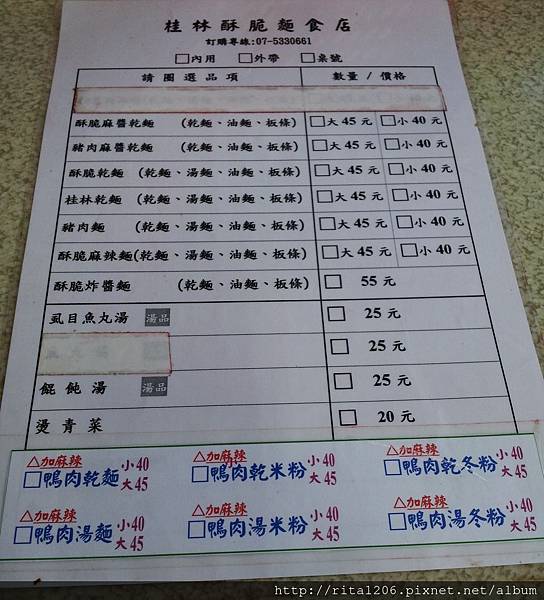 桂林酥脆麵食店
訂購專線:07-5330661
□內用 □外帶 □桌號
請圈選品項 數量 / 價格
酥脆麻醬乾麵 (乾麵、油麵、板條) □大 45 元 □小 40 元
豬肉麻醬乾麵 (乾麵、油麵、板條) □大 45 元 □小 40 元
酥脆乾麵 (乾麵、湯麵、油麵、板條) □大 45 元 □小 40 元
桂林乾麵 (乾麵、湯麵、油麵、板條) □大 45 元 □小 40 元
豬肉麵 (乾麵、湯麵、油麵、板條) □大 45 元 □小 40 元
酥脆麻辣麵(乾麵、湯麵、油麵、板條) □大 45 元 □小 40 元
酥脆炸醬麵 (乾麵、油麵、板條) □ 55 元
虱目魚丸湯 湯品 □ 25 元
□ 25 元
餛飩湯 湯品 □ 25 元
燙青菜 □ 20 元
△加麻辣 △加麻辣 △加麻辣
□鴨肉乾麵 小40 大45 □鴨肉乾米粉 小40 大45 □鴨肉乾冬粉 小40 大45
△加麻辣 △加麻辣 △加麻辣
□鴨肉湯麵 小40 大45 □鴨肉湯米粉 小40 大45 □鴨肉湯冬粉 小40 大45
http://rita1206.pixnet.net/album